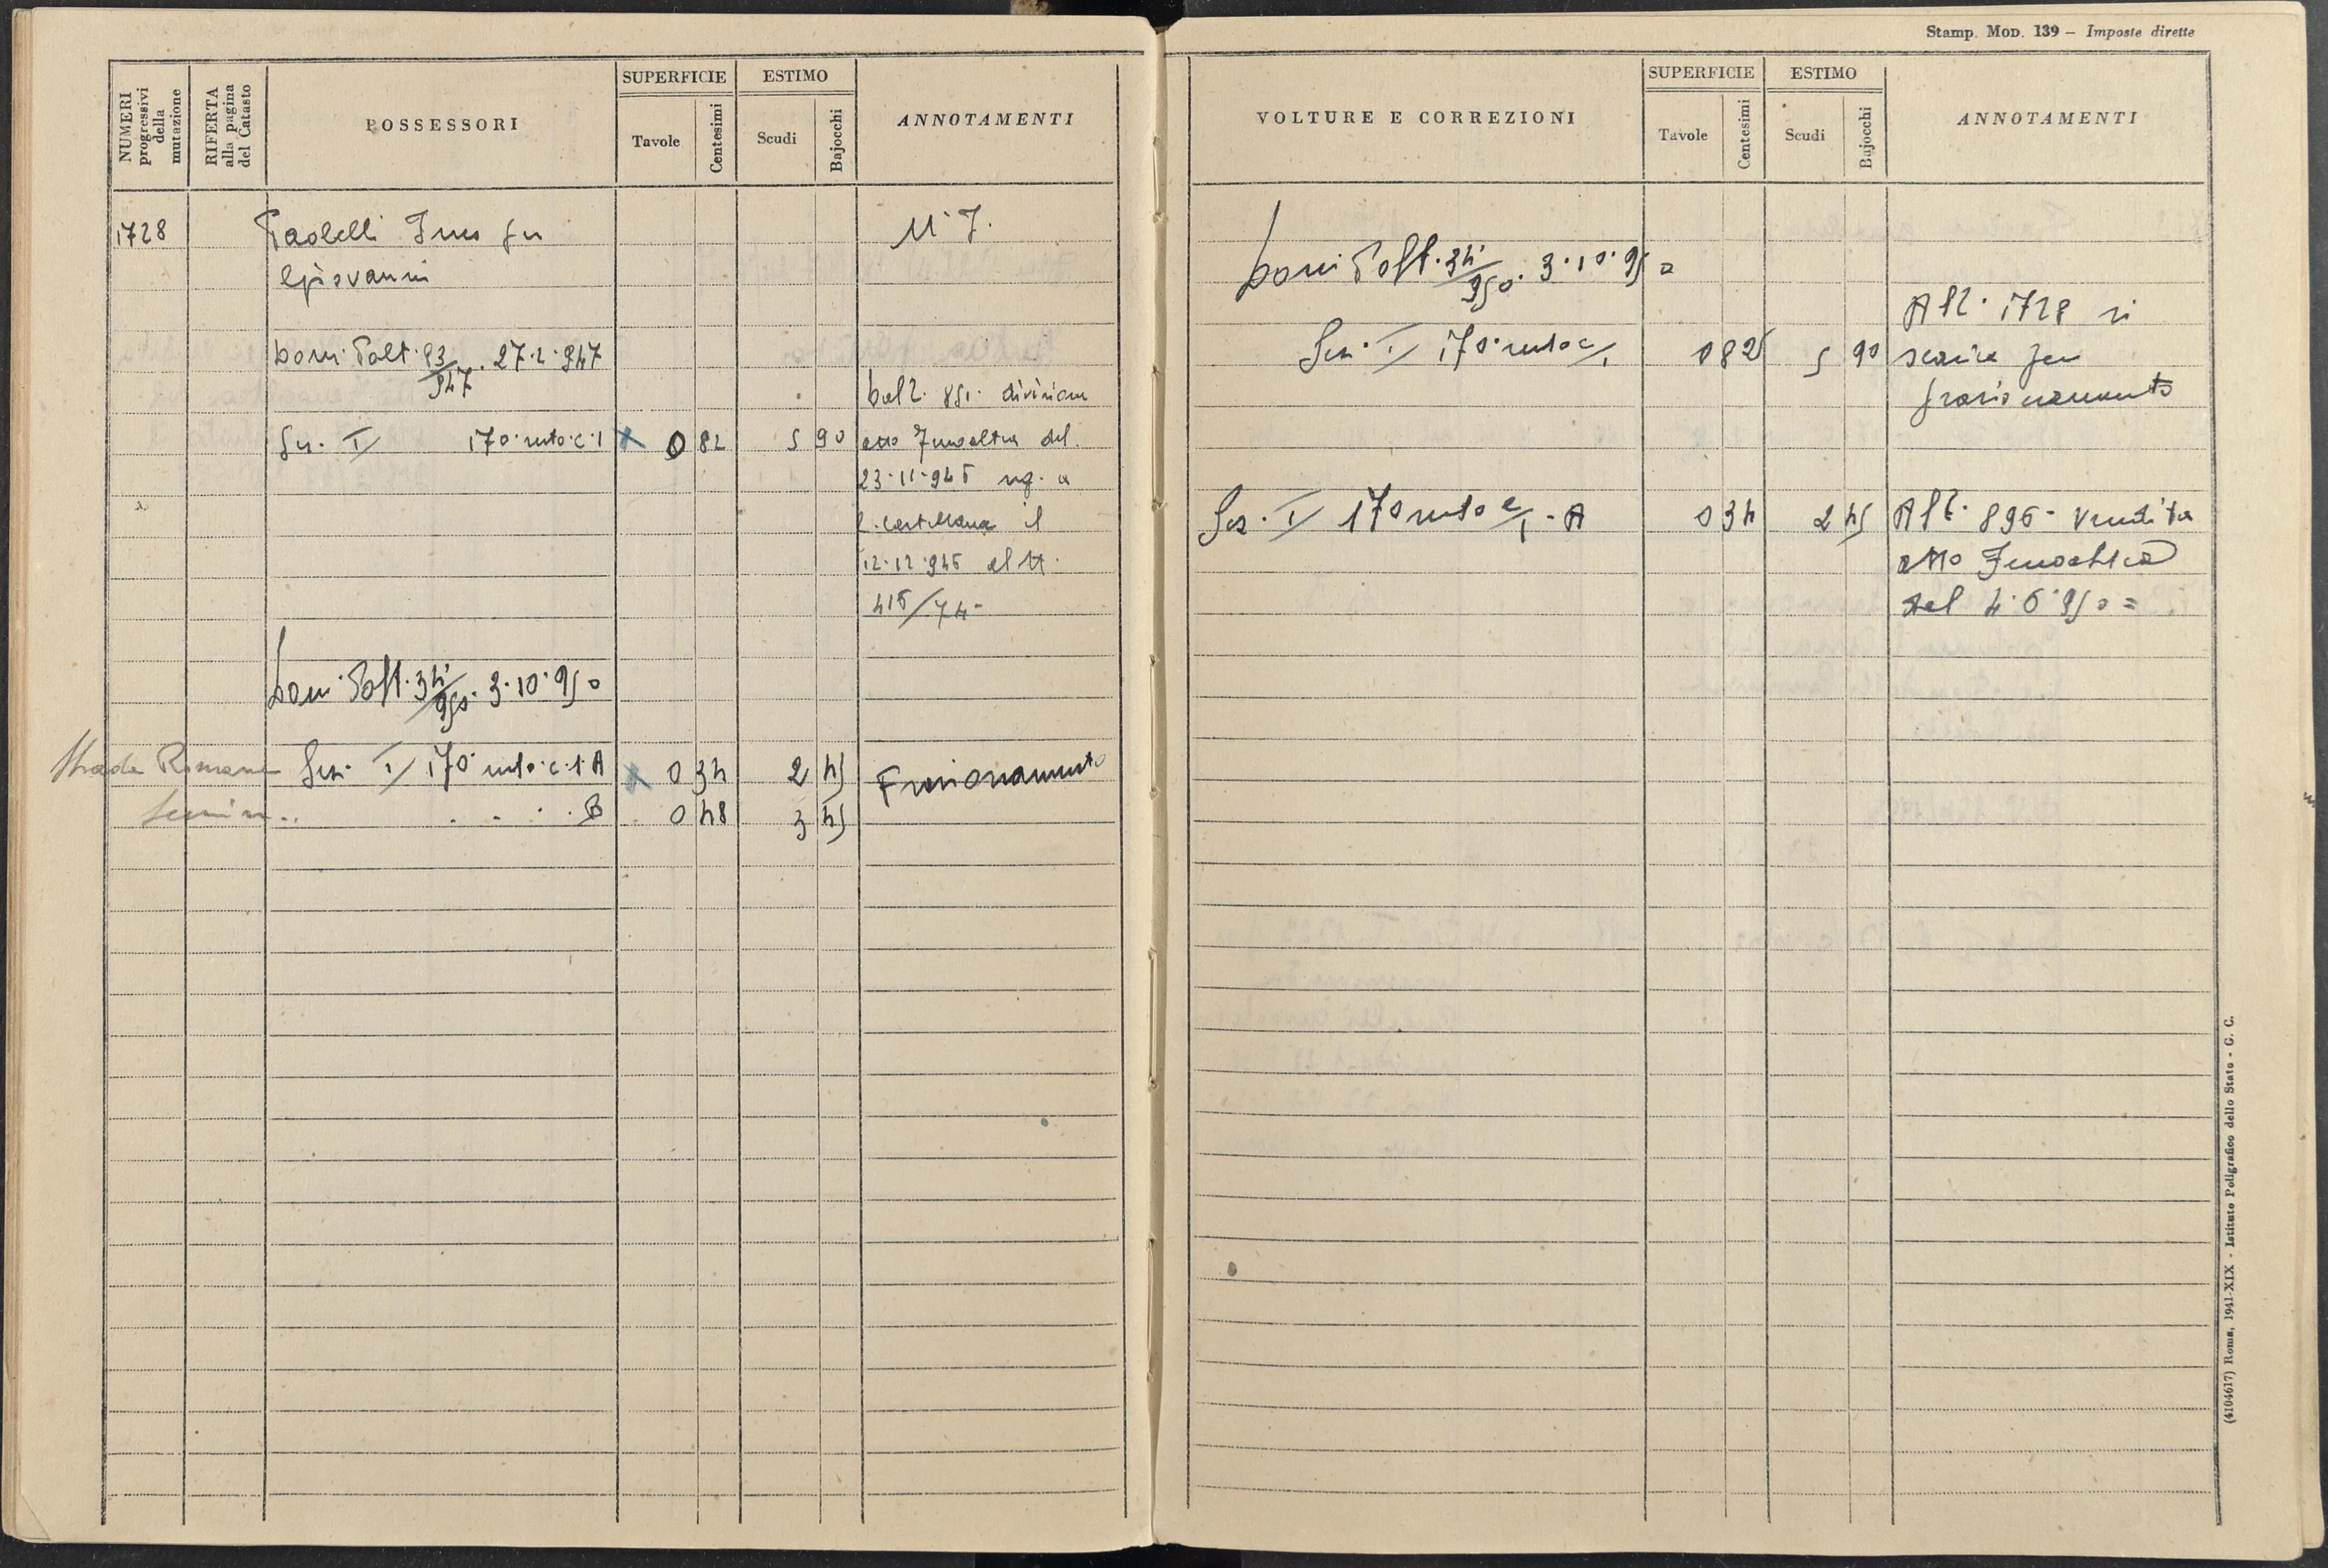 Stamp. Mod. 139 – Imposte dirette
NUMERI progressivi della mutazione
RIFERTA alla pagina del Catasto
POSSESSORI
SUPERFICIE
Tavole
Centesimi
ESTIMO
Scudi
Bajocchi
ANNOTAMENTI
1728
Paolelli Ines fu
Giovanni
M. I.
Dom. Volt. 93/947. 27.2.947
Sez. I 170 resto c. 1 0 82 5 90
Volt. 851. divisione
atto del
23.11.946 reg. a
C. Castellana il
12.12.946 al N.
416/74-
Dom. Volt. 34/950. 3.10.950
Strada Romana
Sez. I 170 resto c. 1 A 0 34 2 45 Frazionamento
Semin..
B 0 48 3 45
VOLTURE E CORREZIONI
SUPERFICIE
Tavole
Centesimi
ESTIMO
Scudi
Bajocchi
ANNOTAMENTI
Dom. Volt. 34/950. 3.10.950
Sez. I 170 resto c/1 0 82 5 90
All. 1728 si
scarica per
frazionamento
Sez. I 170 resto c/1 - A 0 34 2 45
All. 896 - Vendita
atto
del 4.6.950 =
(4104617) Roma, 1941-XIX - Istituto Poligrafico dello Stato - G. C.